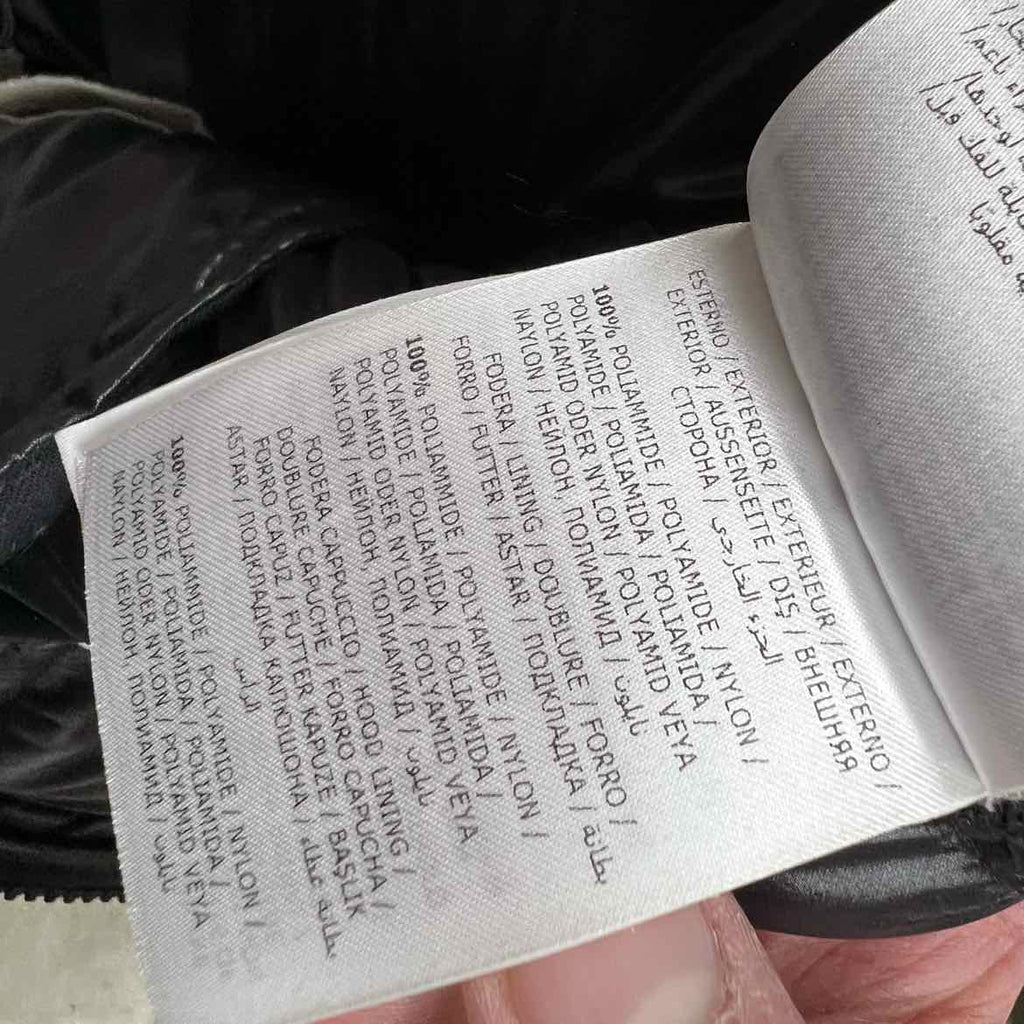 ESTERNO / EXTERIOR / EXTERIEUR / EXTERNO /
EXTERIOR / AUSSENSEITE / DIŞ / ВНЕШНЯЯ
СТОРОНА / الجزء الخارجي
100% POLIAMMIDE / POLYAMIDE / NYLON /
POLYAMIDE / POLIAMIDA / POLIAMIDA /
POLYAMID ODER NYLON / POLYAMID VEYA
NAYLON / НЕЙЛОН, ПОЛИАМИД / نايلون
FODERA / LINING / DOUBLURE / FORRO /
FORRO / FUTTER / ASTAR / ПОДКЛАДКА / بطانة
100% POLIAMMIDE / POLYAMIDE / NYLON /
POLYAMIDE / POLIAMIDA / POLIAMIDA /
POLYAMID ODER NYLON / POLYAMID VEYA
NAYLON / НЕЙЛОН, ПОЛИАМИД / نايلون
FODERA CAPPUCCIO / HOOD LINING /
DOUBLURE CAPUCHE / FORRO CAPUCHA /
FORRO CAPUZ / FUTTER KAPUZE / BAŞLIK
ASTAR / ПОДКЛАДКА КАПЮШОНА / بطانة غطاء
الرأس
100% POLIAMMIDE / POLYAMIDE / NYLON /
POLYAMIDE / POLIAMIDA / POLIAMIDA /
POLYAMID ODER NYLON / POLYAMID VEYA
NAYLON / НЕЙЛОН, ПОЛИАМИД / نايلون